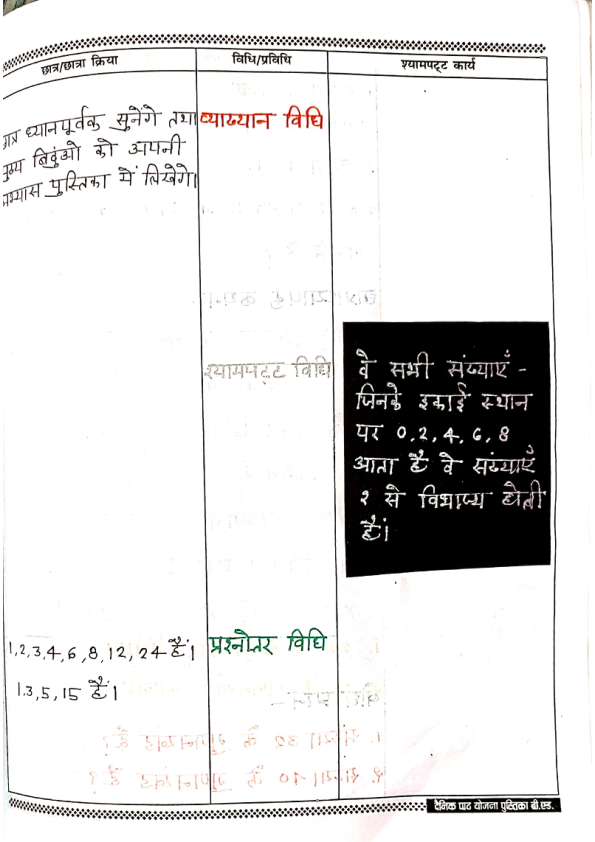 छात्र/छात्रा क्रिया
विधि/प्रविधि
श्यामपट्ट कार्य
ध्यानपूर्वक सुनेंगे तथा
बिदुंओ को अपनी
पुस्तिका में लिखेगे।
व्याख्यान विधि
श्यामपट्ट विधि
वे सभी संख्याएँ -
जिनके इकाई स्थान
पर 0,2,4,6,8
आता है वे संख्याएँ
२ से विभाज्य होती
हैं।
1,2,3,4,6,8,12,24 हैं।
1.3,5,15 हैं।
प्रश्नोतर विधि
दैनिक पाठ योजना पुस्तिका बी.एड.